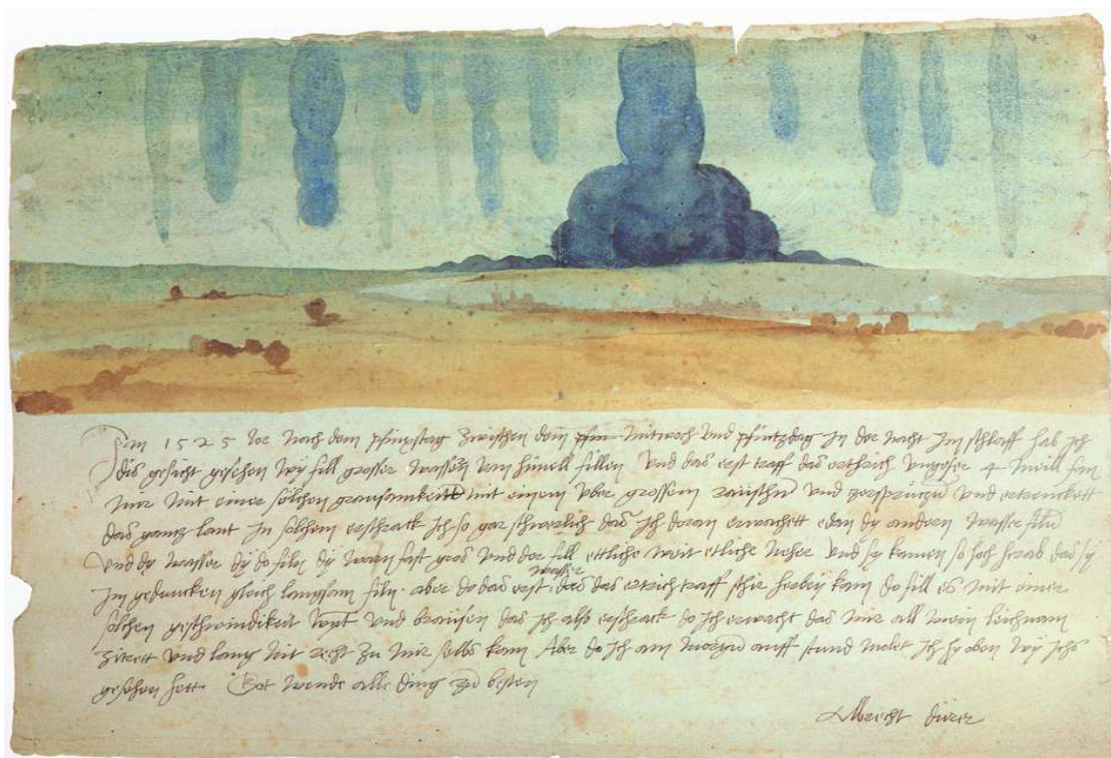 Im 1525 Jor nach dem pfinxstag zwischen dem pfin mitwoch und pfintzdag in der nacht im schlaff hab ich
dis gesicht gesehen wy fill grosser wassern vom himell fillen Und das erst traff das erthrich ungefer 4 meill fan
mir mit einer solchen grausamkeitt mit einem uber grossem raüschn und zersprützn und ertrenckett
das gantz lant In solchem erschrack ich so gar schwerlich das ich doran erwachett edan dy andern wasser filn
Und dy wasser dy do filn dy warn fast gros und der fill ettliche weit etliche neher und sy kamen so hoch herab das sy
im gedancken gleich langsam filn. aber do das erst wasser das das ertrich traff schir herbey kam do fill es mit einer
solchen geschwindikeit wynt und braüsen das ich also erschrack do ich erwacht das mir all mein leichnam
zitrett und lang nit recht zu mir selbs kam Aber do ich am morgn auff stund molet ich hy oben wy ichs
gesehen hett. Got wende alle ding zu besten
Albrecht dürer